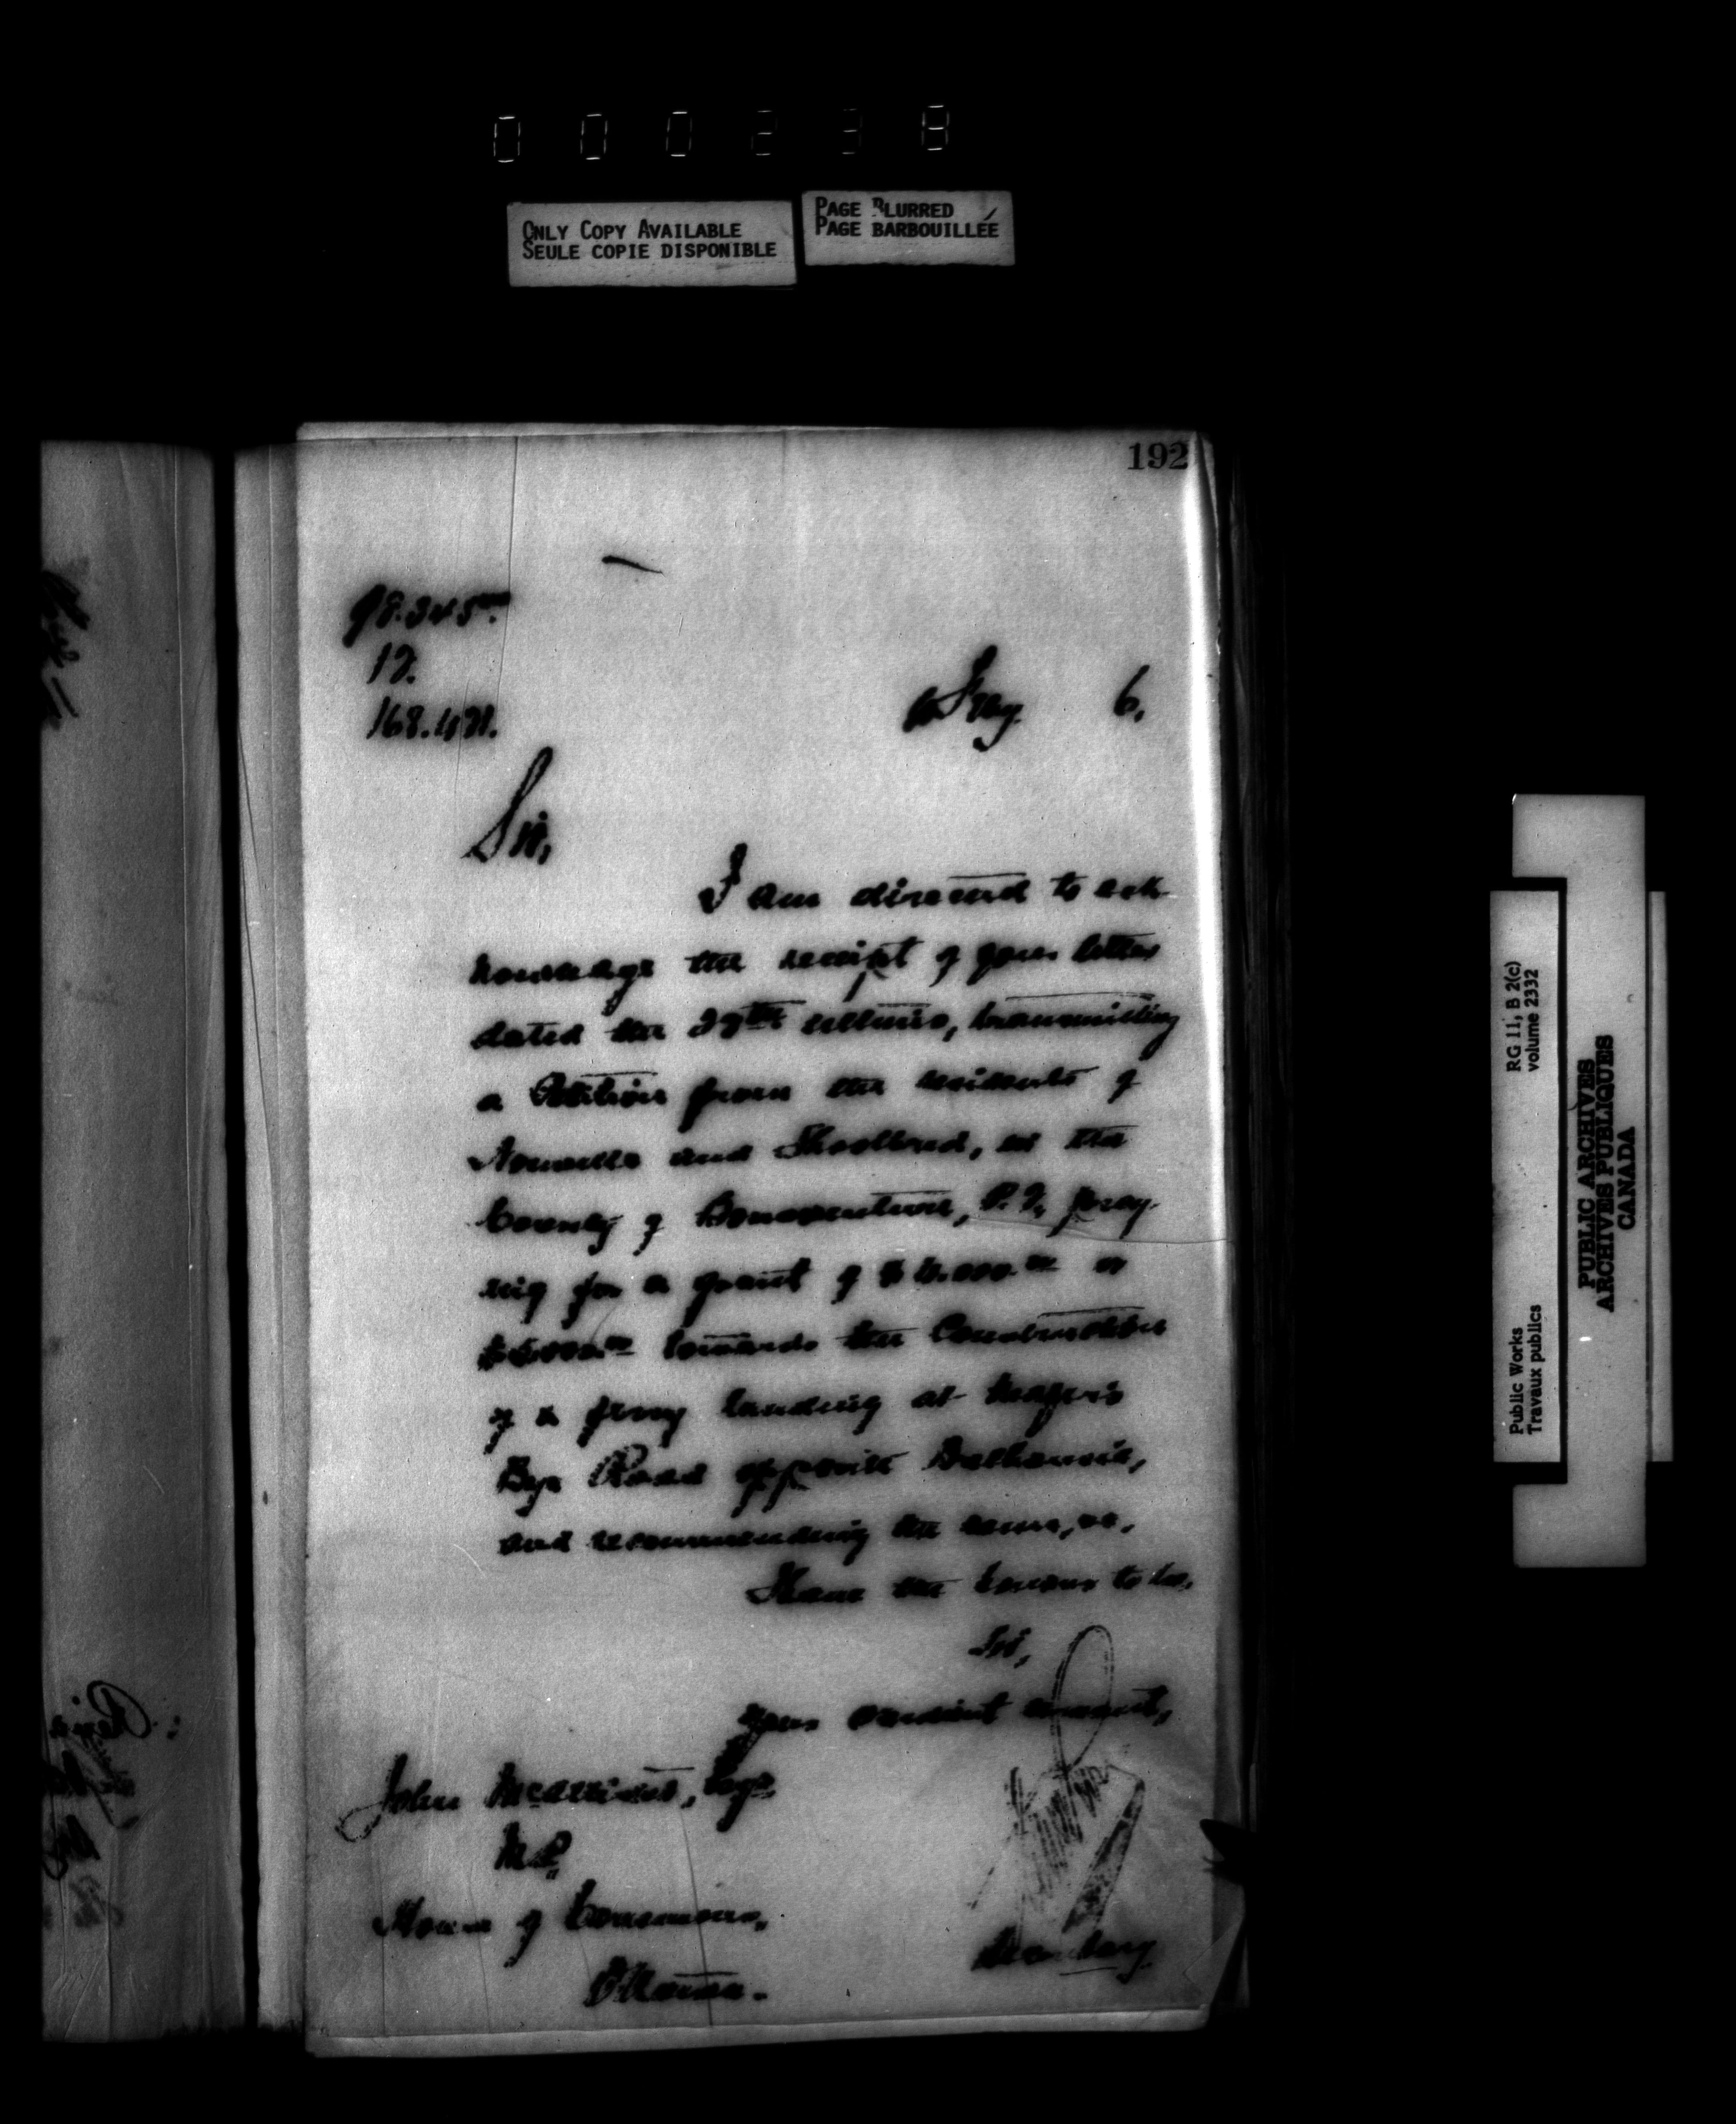 000238
ONLY COPY AVAILABLE
SEULE COPIE DISPONIBLE
PAGE BLURRED
PAGE BARBOUILLÉE
192
98.345
12.
6.
Sir,
I am directed to ack-
nowledge the receipt of your letter
dated the 29th ultimo, transmitting
a Petition from the residents of
Nouvelle and Shoolbred, in the
County of Bonaventure, P.Q., pray-
ing for a grant of $ or
towards the Construction
of a ferry landing at
Bye Road opposite Dalhousie,
and recommending the same, &c.
I have the honour to be,
Sir,
Your obedient servant,
John Esqr.
M.P.
House of Commons,
Ottawa.
Secretary
Public Works
Travaux publics
RG 11, B 2(c)
volume 2332
PUBLIC ARCHIVES
ARCHIVES PUBLIQUES
CANADA